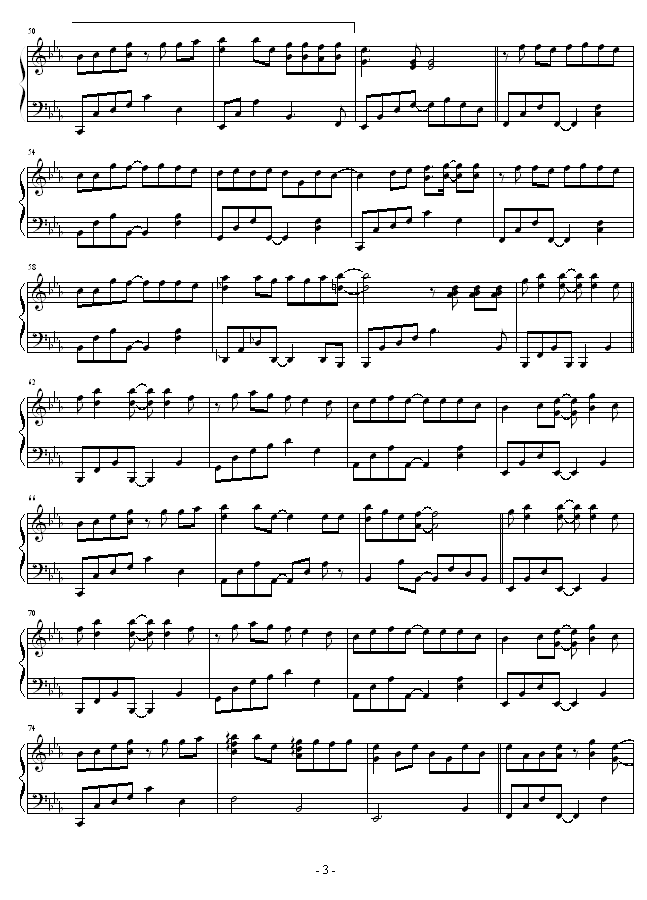 50
54
58
62
66
70
74
- 3 -